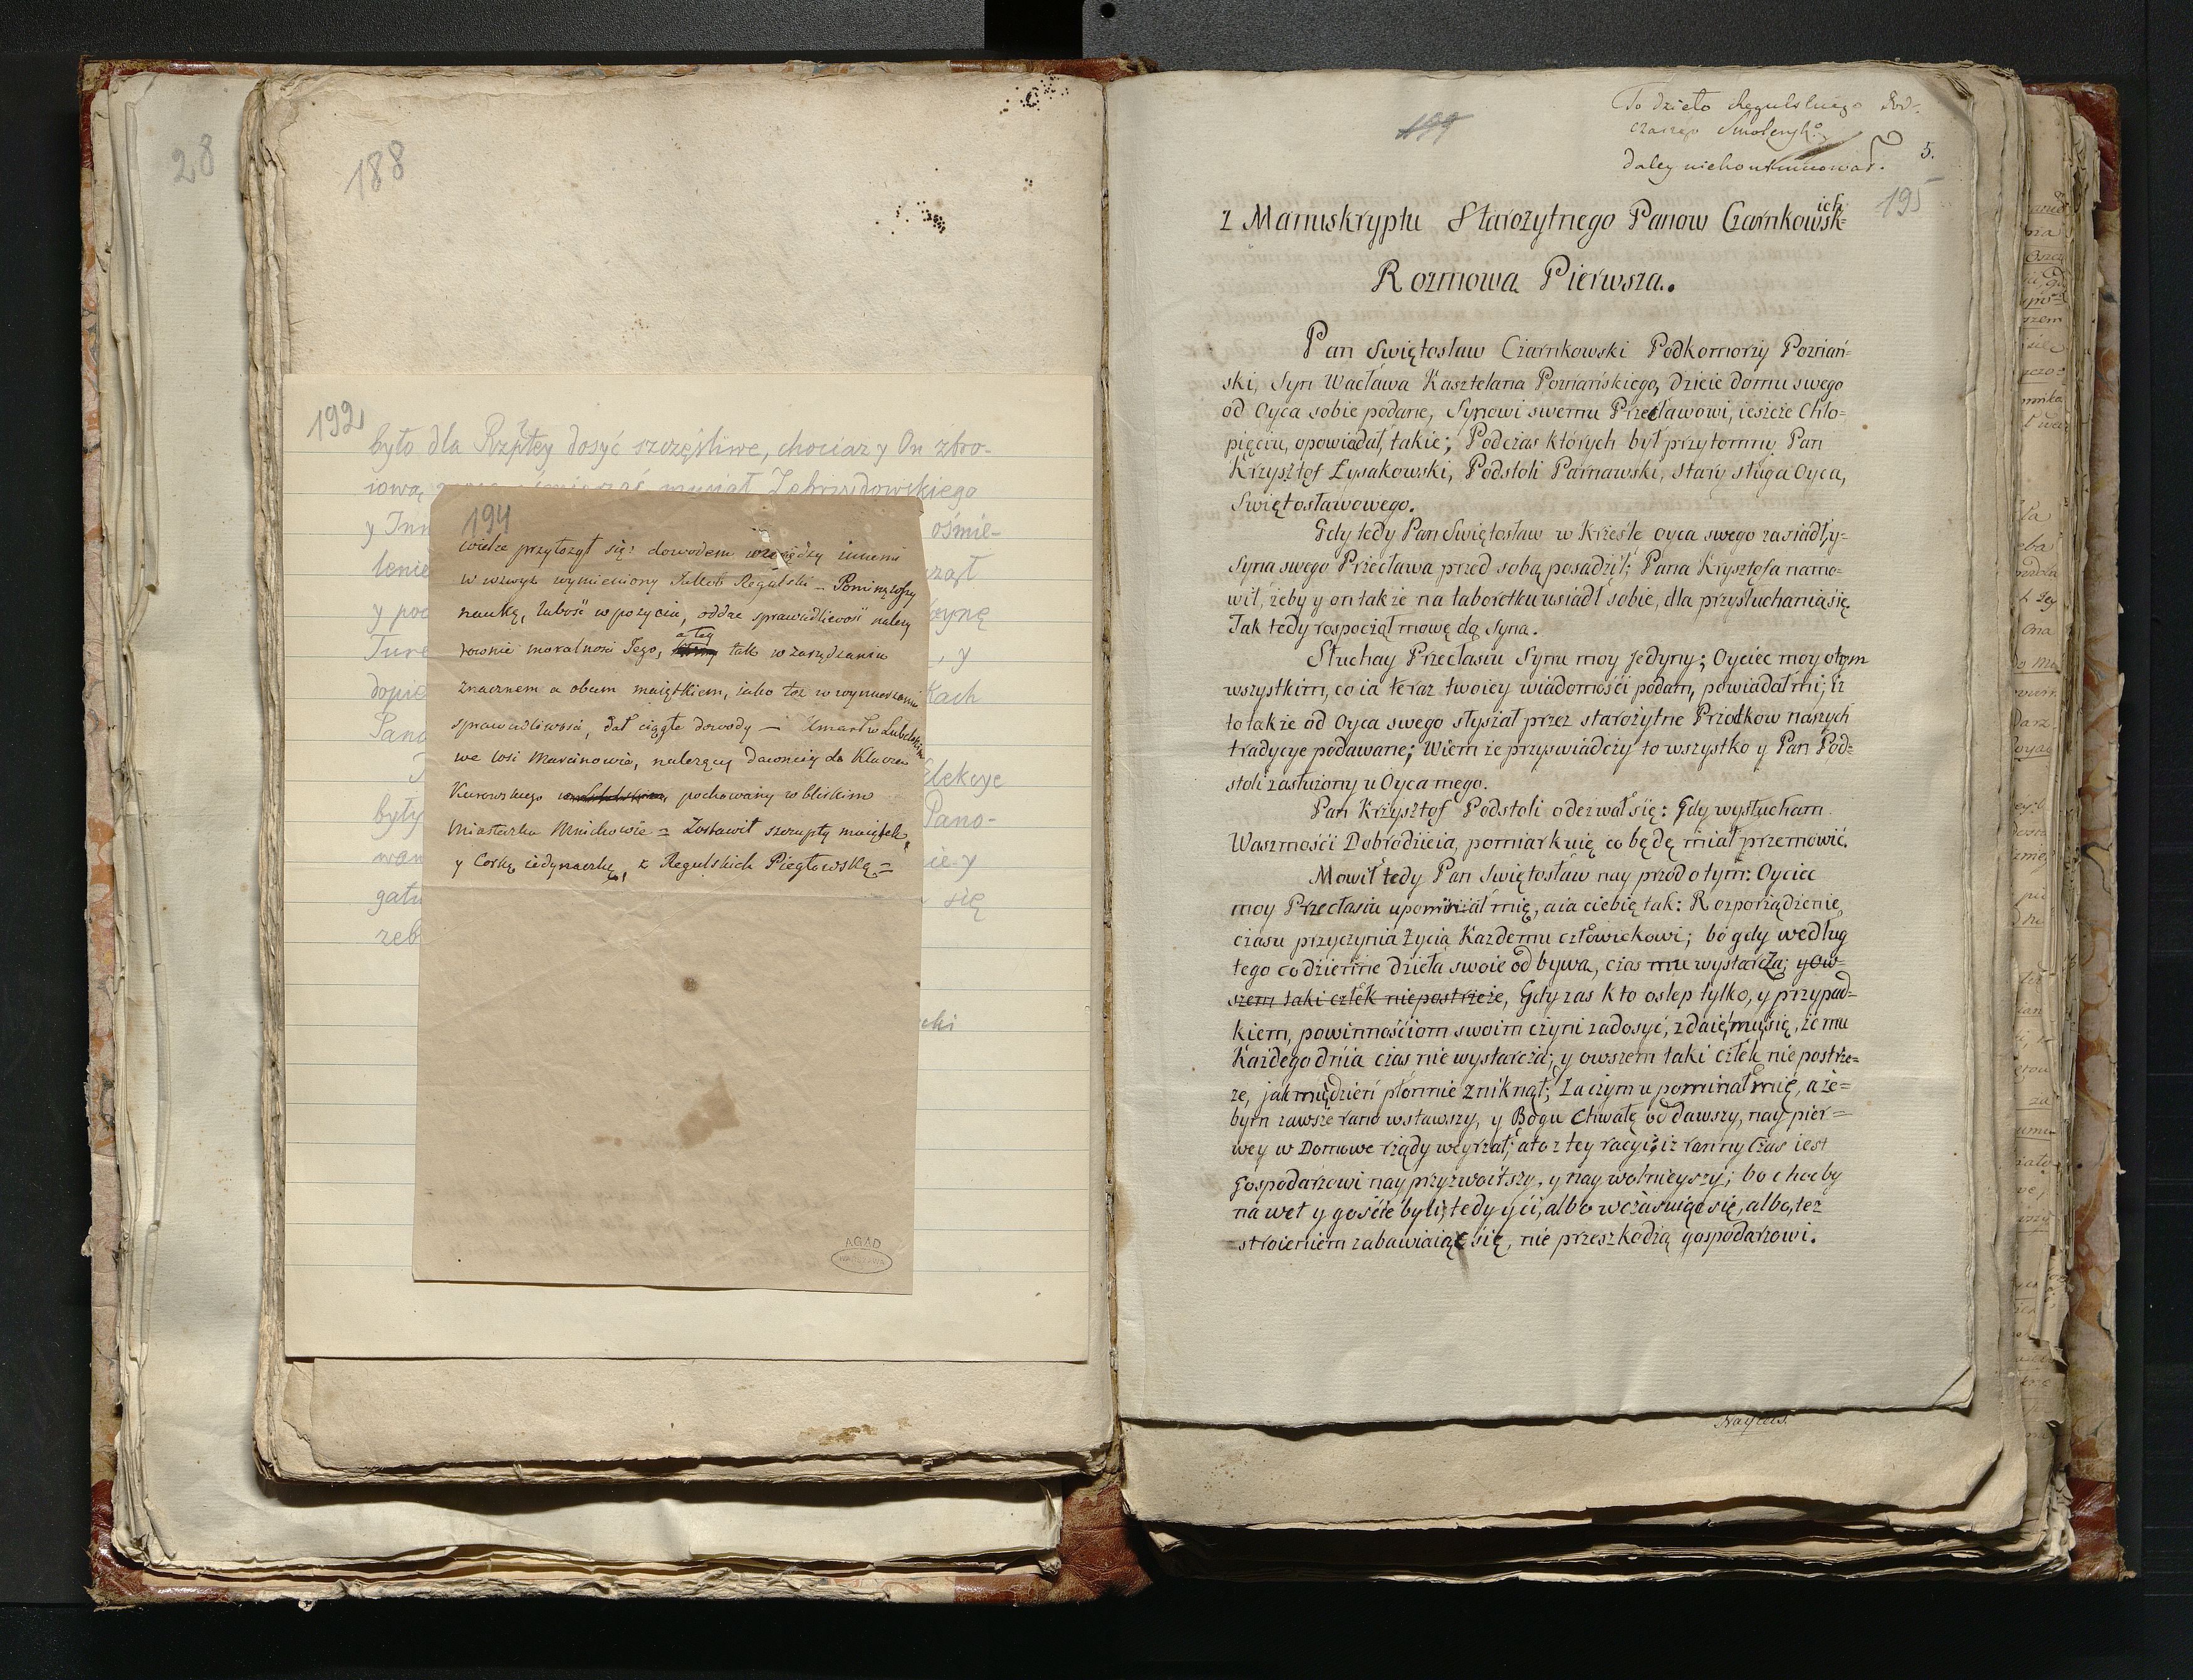 28
188
192
było dla Rzpltey dosyć szczęśliwe, chociaż y On zbro-
iową musiał Zebrzydowskiego
y Inn ośmie-
lenie
y poc
Ture , y
dopie kach
Pano
Elekcye
były Pano-
wan ie y
gatu się
zeb
194
wielce przyłożył się: dowodem między innemi
w wzwyż wymieniony Jakób Regulski – Pominąwszy
naukę, lubość w pożyciu, oddać sprawiedliwość należy
równie moralności Jego, a tey tak w zarządzaniu
znacznem a obcem maiątkiem, iako też w wymierzaniu
sprawiedliwości, dał ciągłe dowody – Umarł w Lubelskim
we wsi Marcinowie, należący dawniey do Klucza
Kurowskiego pochowany w bliskim
Miasteczku Mnichowie = Zostawił szczupły maiątek,
y Corkę iedynaczkę, z Regulskich Piegłowską =
AGAD
WARSZAWA
To dzieło Regulskiego Pod-
czaszego Smoleńsko
daley niekontynuował.
199
5.
195
z Manuskryptu Starożytnego Panow Czarnkowskich
Rozmowa Pierwsza.
Pan Swiętosław Czarnkowski Podkomorzy Poznań-
ski, Syn Wacława Kasztelana Poznańskiego, dzieie domu swego
od Oyca sobie podane, Synowi swemu Przecławowi, ieszcze Chło-
pięciu, opowiadał, takie; Podczas których był przytomny Pan
Krzysztof Łysakowski, Podstoli Parnawski, stary sługa Oyca,
Swiętosławowego.
Gdy tedy Pan Swiętosław w Krześle oyca swego zasiadł, y-
Syna swego Przecława przed sobą posadził; Pana Krysztofa namo-
wił, żeby y on także na taboretku usiadł sobie, dla przysłuchania się.
Tak tedy rospoczął mowę do Syna.
Słuchay Przecłasiu Synu moy Jedyny; Oyciec moy o tym
wszystkim, co ia teraz twoiey wiadomości podam, powiadał mi; iż
to także od Oyca swego słyszał przez starożytne Przodkow naszych
tradycye podawane; Wiem że przyświadczy to wszystko y Pan Pod-
stoli zasłużony u Oyca mego.
Pan Krzysztof Podstoli odezwał się: Gdy wysłucham
Waszmości Dobrodzieia, pomiarkuię co będę miał przemowić.
Mowił tedy Pan Swiętosław nay przod o tym: Oyciec
moy Przecłasiu upominał mię, a ia ciebię tak: Rozporządzenie
czasu przyczynia życia Każdemu człowiekowi; bo gdy według
tego codzienne dzieła swoie odbywa, czas mu wystarcza; y ow-
szem taki człek niepostrzeże, Gdy zas kto oslep tylko, y przypad-
kiem, powinnościom swoim czyni zadosyć, zdaie mu się, że mu
Każdego dnia czas nie wystarcza; y owszem taki człek nie postrze-
że, jak mu dzień płonnie zniknął; Za czym upominał mię, aże-
bym zawsze rano wstawszy, y Bogu Chwałę oddawszy, nay pier-
wey w Domowe rządy weyrzał; a to z tey racyi; iż ranny czas iest
Gospodarzowi nay przyzwoitszy, y nay wolnieyszy; bo choćby
nawet y goście byli, tedy y ci, albo wczasuiąc się, albo, też
stroieniem zabawiaiąc się, nie przeszkodzą gospodarzowi.